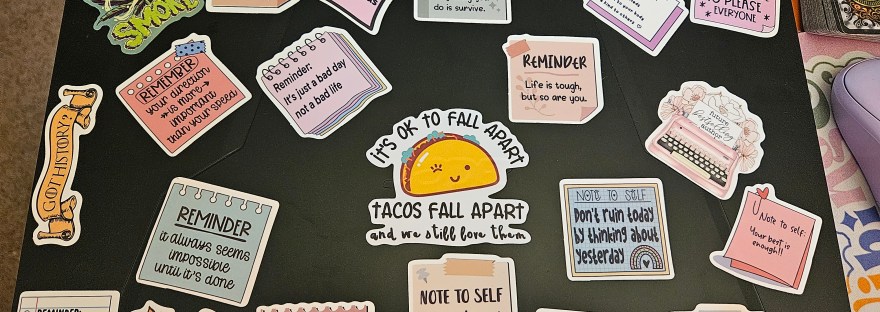 SMOKE
do is survive.
PLEASE
EVERYONE
REMEMBER
your direction
is more
important
than your speed
Reminder:
It's just a bad day
not a bad life
REMINDER
Life is tough,
but so are you.
GOT HISTORY?
it's OK to FALL APART
TACOS FALL APART
and we still love them
future
bestselling
author
REMINDER
it always seems
impossible
until it's done
NOTE TO SELF
Don't ruin today
by thinking about
yesterday
Note to self:
Your best is
enough!!
NOTE TO SELF
REMINDER: